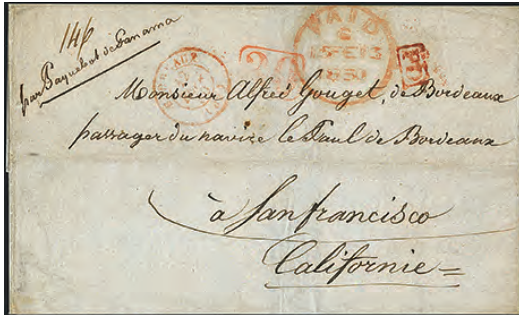 146
par Paquebot de Panama
PAID
1850
Monsieur Alfred Gouget, de Bordeaux
passager du navire le Paul de Bordeaux
à San francisco
Californie =